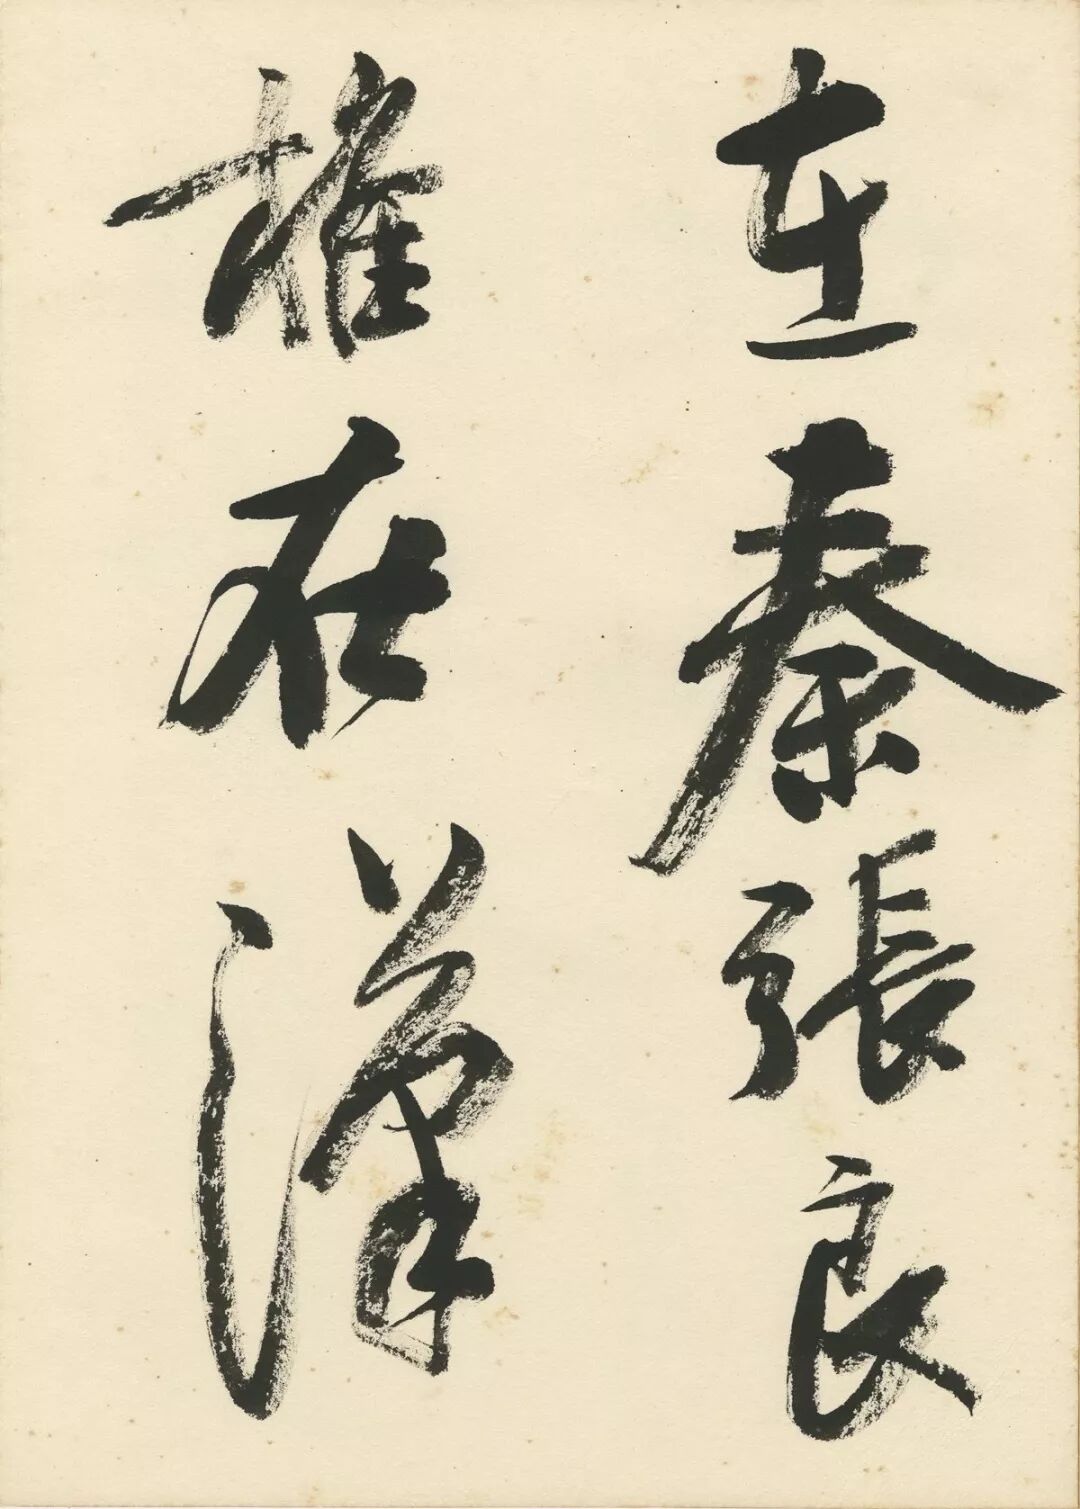 在秦張良
椎在漢